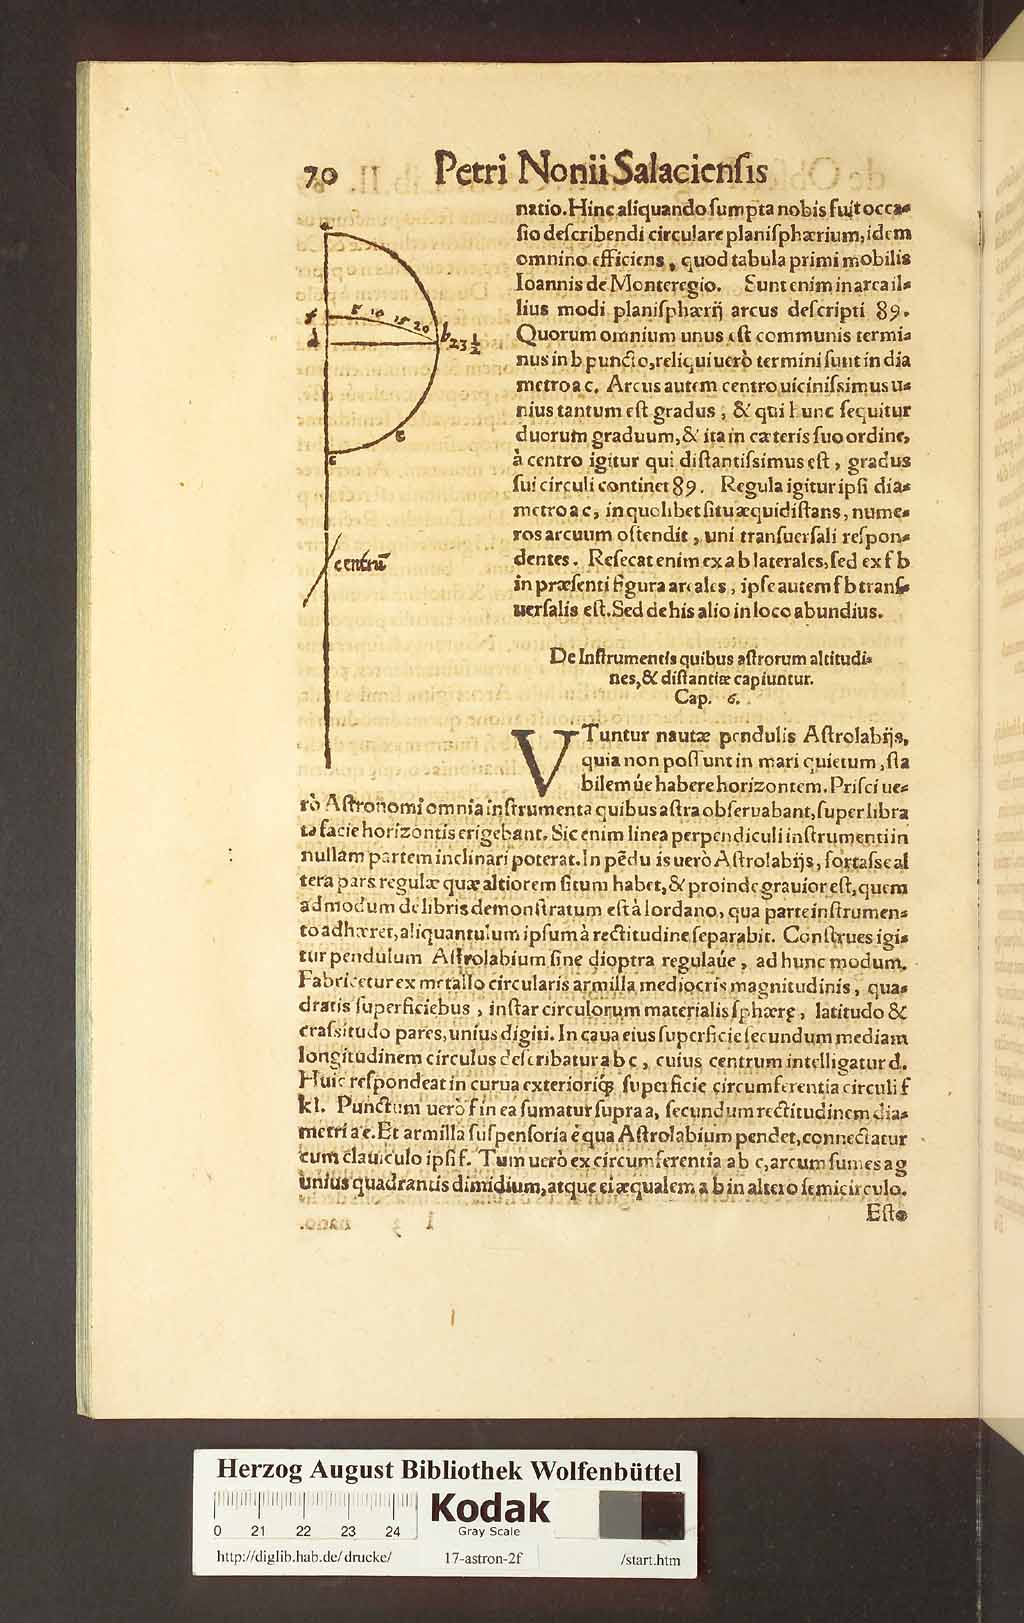 70 Petri Nonii Salaciensis
natio. Hinc aliquando sumpta nobis fuit occa⸗
sio describendi circulare planisphærium, idem
omnino efficiens, quod tabula primi mobilis
Ioannis de Monteregio. Sunt enim in area il⸗
lius modi planisphærij arcus descripti 89.
Quorum omnium unus est communis termi⸗
nus in b puncto, reliqui uerò termini sunt in dia
metro a c. Arcus autem centro uicinissimus u⸗
nius tantum est gradus, & qui hunc sequitur
duorum graduum, & ita in cæteris suo ordine,
à centro igitur qui distantissimus est, gradus
sui circuli continet 89. Regula igitur ipsi dia⸗
metro a c, in quolibet situ æquidistans, nume⸗
ros arcuum ostendit, uni transuersali respon⸗
dentes. Resecat enim ex a b laterales, sed ex f b
in præsenti figura areales, ipse autem f b trans⸗
uersalis est. Sed de his alio in loco abundius.
a
f 5 10 15 20 b
d 23 ½
g
c
centrū
De Instrumentis quibus astrorum altitudi⸗
nes, & distantiæ capiuntur.
Cap. 6.
VTuntur nautæ pendulis Astrolabijs,
quia non possunt in mari quietum, sta
bilemúe habere horizontem. Prisci ue⸗
rò Astronomi omnia instrumenta quibus astra obseruabant, super libra
ta facie horizontis erigebant. Sic enim linea perpendiculi instrumenti in
nullam partem inclinari poterat. In pēdu is uerò Astrolabijs, fortasse al
tera pars regulæ quæ altiorem situm habet, & proinde grauior est, quem
admodum de libris demonstratum est à Iordano, qua parte instrumen⸗
to adhæret, aliquantulum ipsum à rectitudine separabit. Construes igi⸗
tur pendulum Astrolabium sine dioptra regulaúe, ad hunc modum.
Fabricetur ex metallo circularis armilla mediocris magnitudinis, qua⸗
dratis superficiebus, instar circulorum materialis sphærę, latitudo &
crassitudo pares, unius digiti. In caua eius superficie secundum mediam
longitudinem circulus describatur a b c, cuius centrum intelligatur d.
Huic respondeat in curua exterioriq́; superficie circumferentia circuli f
k l. Punctum uerò f in ea sumatur supra a, secundum rectitudinem dia⸗
metri a c. Et armilla suspensoria è qua Astrolabium pendet, connectatur
cum clauiculo ipsi f. Tum uerò ex circumferentia a b c, arcum sumes a g
unius quadrantis dimidium, atque ei æqualem a b in altero semicirculo.
Esto
Herzog August Bibliothek Wolfenbüttel
0 21 22 23 24
Kodak
Gray Scale
http://diglib.hab.de/drucke/ 17-astron-2f /start.htm